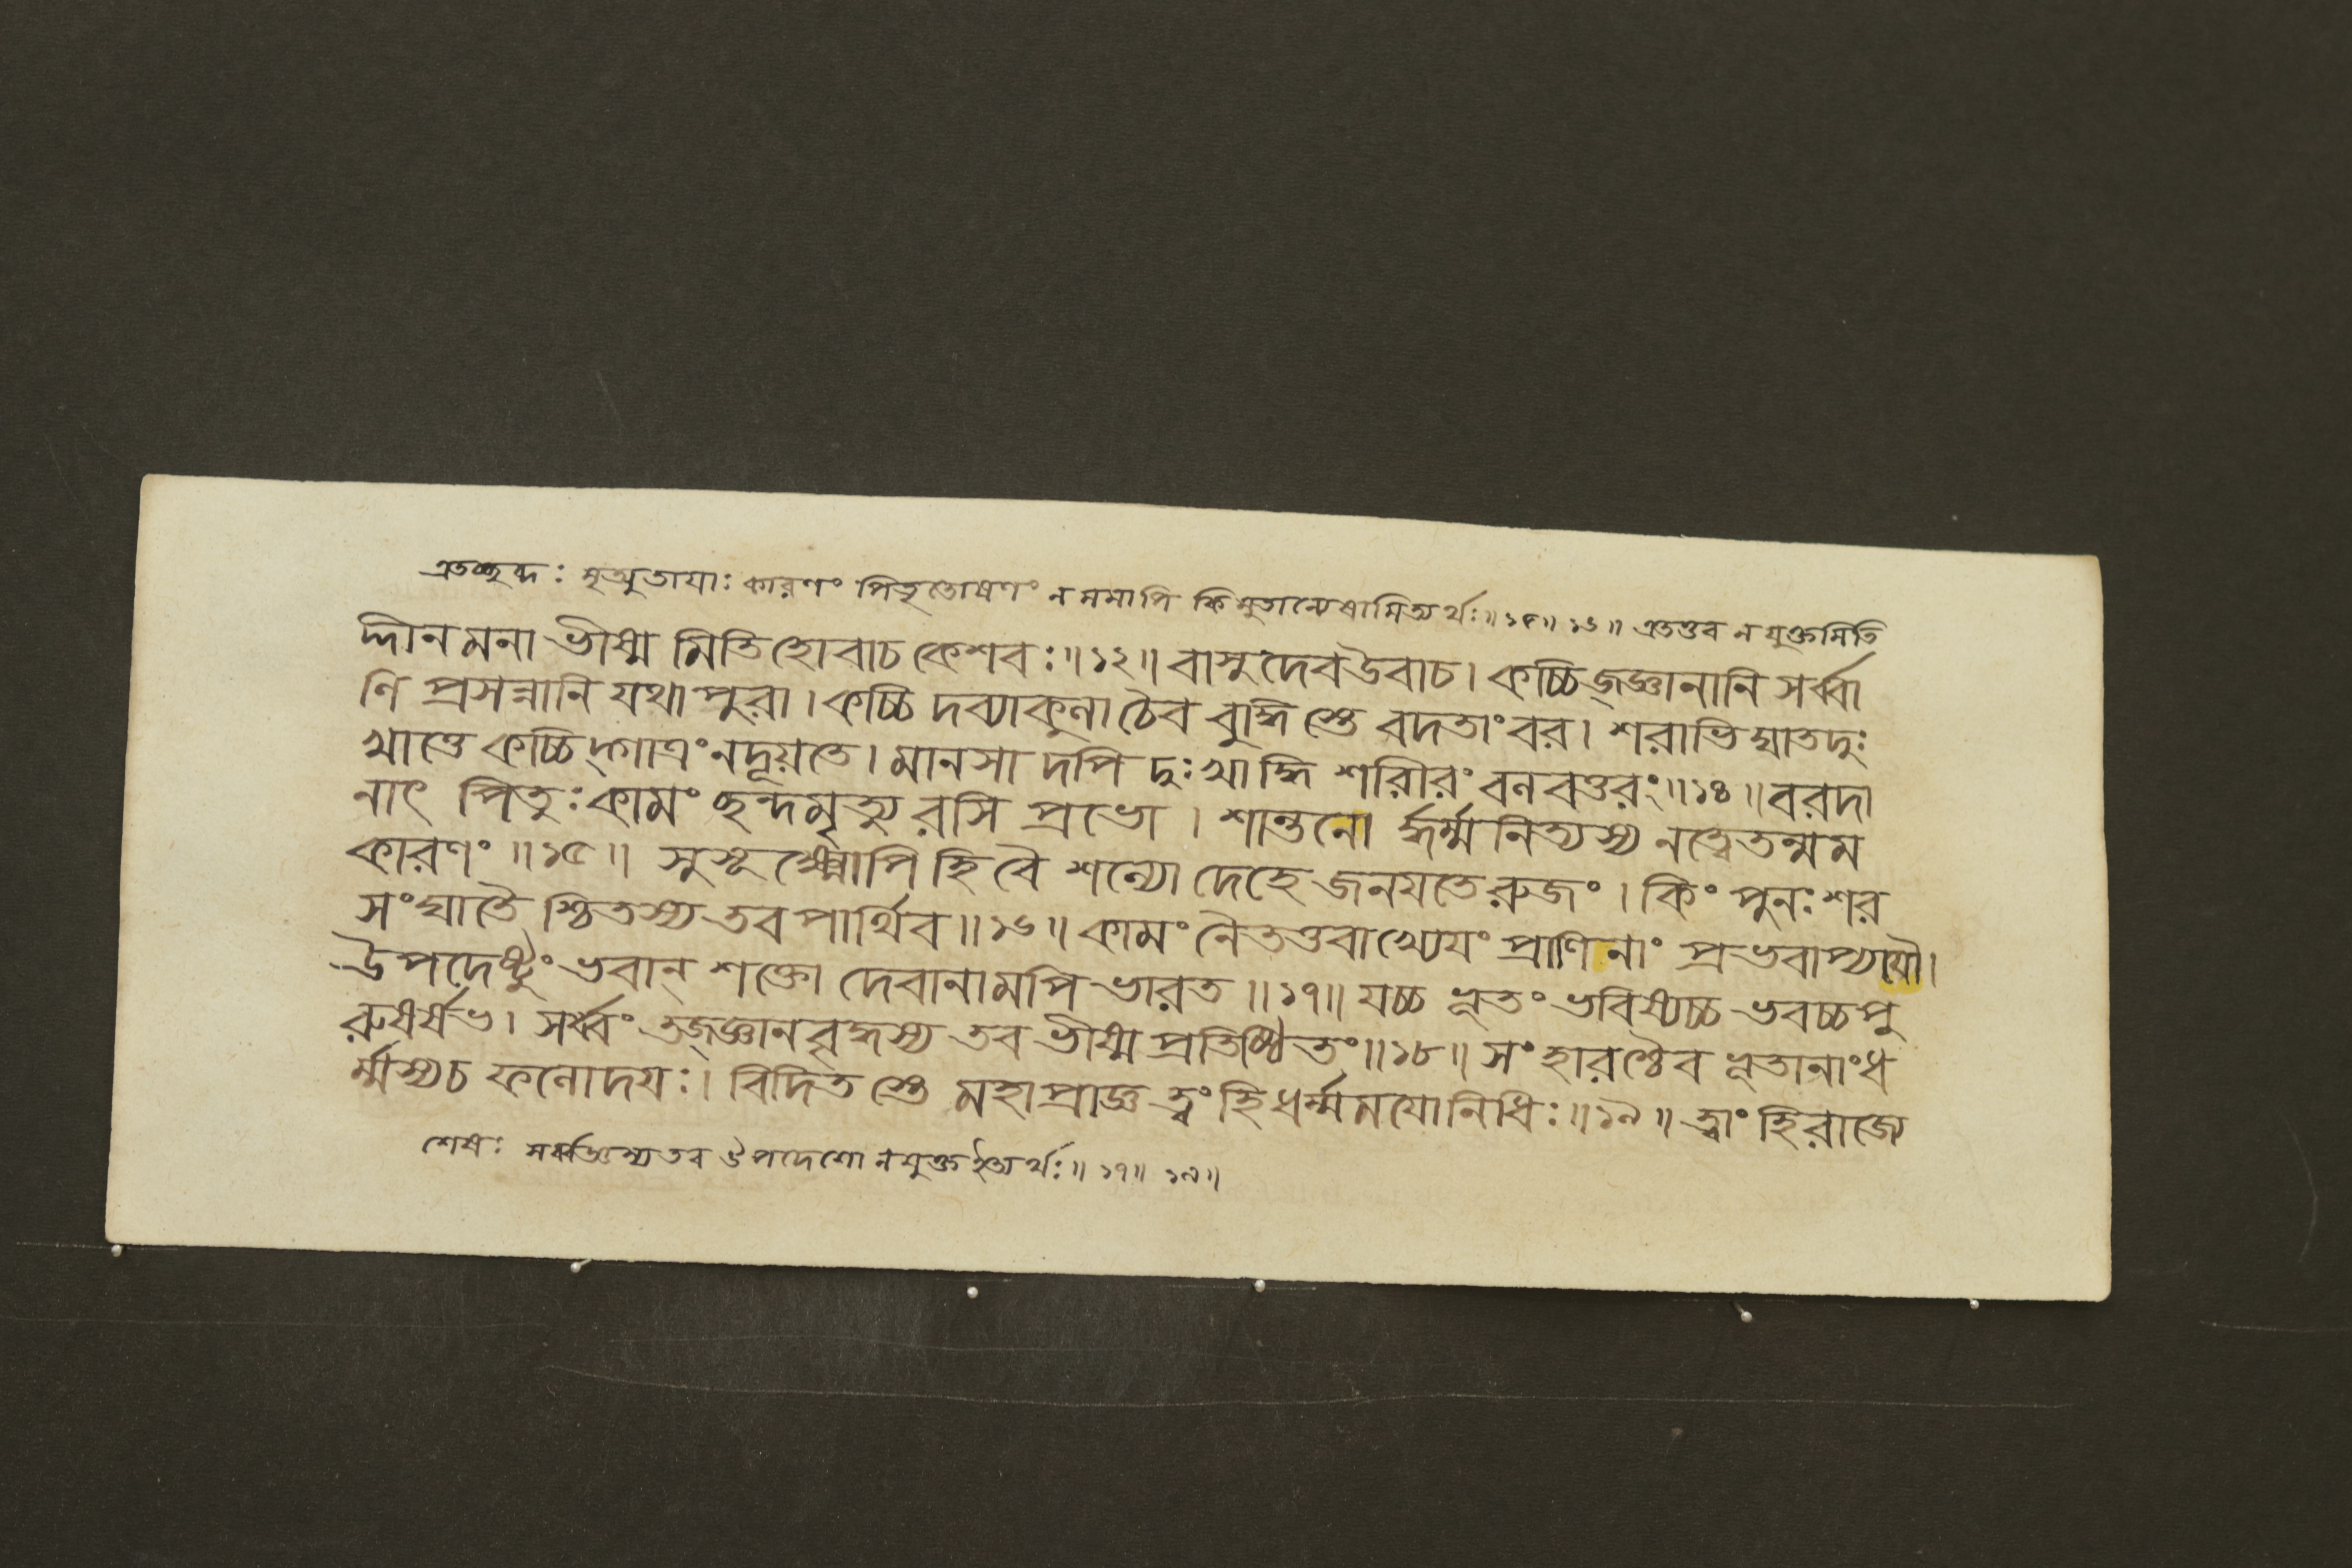 এতচ্ছন্দঃ মৃত্যুতায়াঃ কারণং পিতৃতোষণং ন মমাপি কিমুতান্যেষামিত্যর্থঃ॥১৫॥১৬॥ এতত্তব ন যুক্তমিতি
দ্দীনমনা ভীষ্ম মিতিহোবাচ কেশবঃ॥১২॥ বাসুদেবউবাচ। কচ্চিজ্জ্ঞানানি সর্ব্বা
ণি প্রসন্নানি যথা পুরা। কচ্চি দব্যাকুলা চৈব বুদ্ধি স্তে বদতাংবর। শরাভিঘাতদুঃ
খাত্তে কচ্চিদ্গাত্রং নদূয়তে। মানসা দপি দুঃখাদ্ধি শরীরং বলবত্তরং॥১৪॥ বরদা
নাৎ পিতুঃ কামং ছন্দমৃত্যু রসি প্রভো। শান্তনো র্দ্ধর্ম্মনিত্যস্য নত্বেতন্মম
কারণং॥১৫॥ সুসূক্ষ্মোপি হি বৈ শল্যো দেহে জনযতে রুজং। কিং পুনঃ শর
সংঘাতৈ শ্চিতস্য তব পার্থিব॥১৬॥ কামং নৈতত্তবাখ্যেযং প্রাণিনাং প্রভবাপ্যযৌ।
উপদেষ্টুং ভবান্ শক্তো দেবানামপি ভারত॥১৭॥ যচ্চ ভূতং ভবিষ্যচ্চ ভবচ্চ পু
রুষর্ষভ। সর্ব্বং তজ্জ্ঞানবৃদ্ধস্য তব ভীষ্ম প্রতিষ্ঠিতং॥১৮॥ সংহারশ্চৈব ভূতানাং ধ
র্ম্মস্যচ ফলোদযঃ। বিদিত স্তে মহাপ্রাজ্ঞ ত্বং হি ধর্ম্মমযোনিধিঃ॥১৯॥ ত্বাং হিরাজ্যে
শেষঃ সর্ব্বজ্ঞস্য তব উপদেশো ন যুক্ত ইত্যর্থঃ॥১৭॥১৯॥